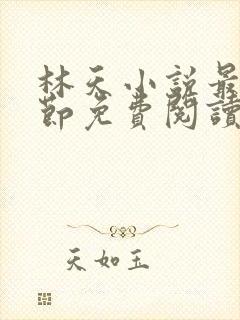 林天小說最
節免費閱讀
天如玉